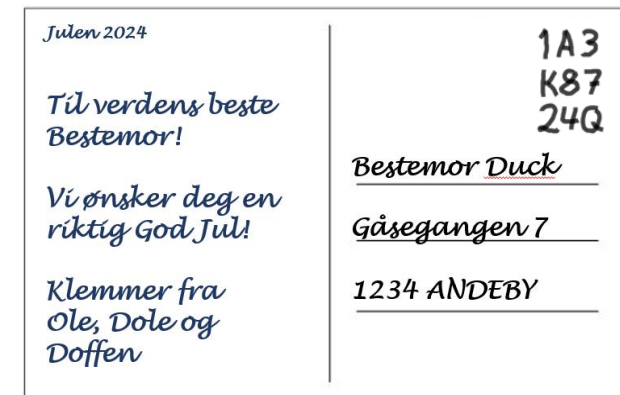 Julen 2024
Til verdens beste
Bestemor!
Vi ønsker deg en
riktig God Jul!
Klemmer fra
Ole, Dole og
Doffen
1A3
K87
24Q
Bestemor Duck
Gåsegangen 7
1234 ANDEBY